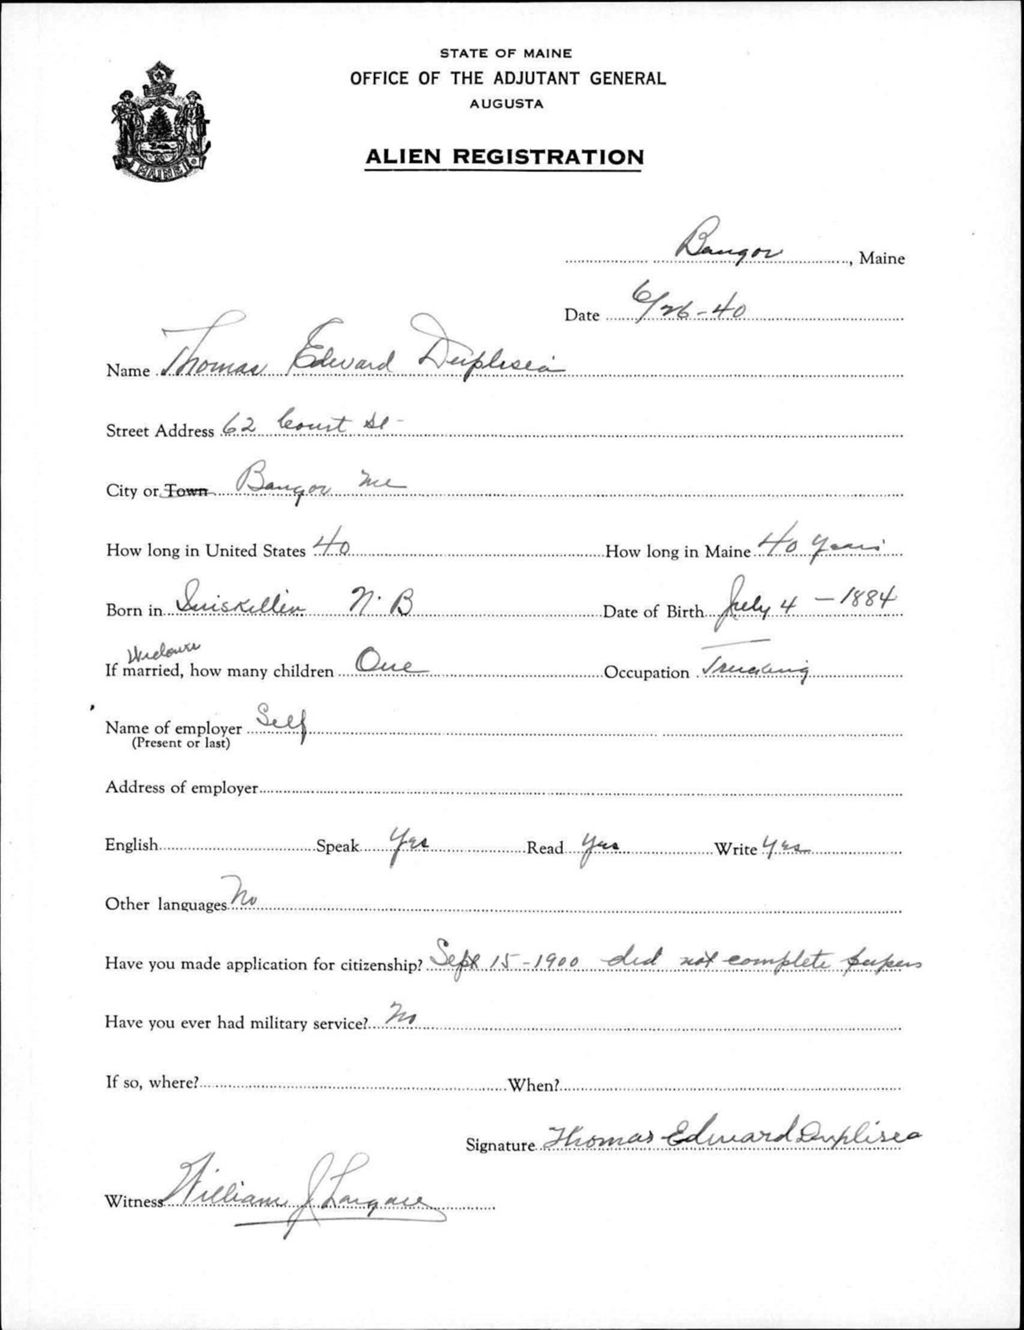 STATE OF MAINE
OFFICE OF THE ADJUTANT GENERAL
AUGUSTA
ALIEN REGISTRATION
MAINE
Bangor, Maine
Date 6/26-40
Name Thomas Edward Duplisea
Street Address 62 Court St-
City or Town Bangor Me
How long in United States 40 How long in Maine 40 years
Born in N.B Date of Birth July 4 - 1884
Widower
If married, how many children One Occupation Trucking
Name of employer Self
(Present or last)
Address of employer
English Speak Yes Read Yes Write Yes
Other languages No
Have you made application for citizenship? Sept 15-1900 did not complete papers
Have you ever had military service? No
If so, where? When?
Signature Thomas Edward Duplisea
Witness William J